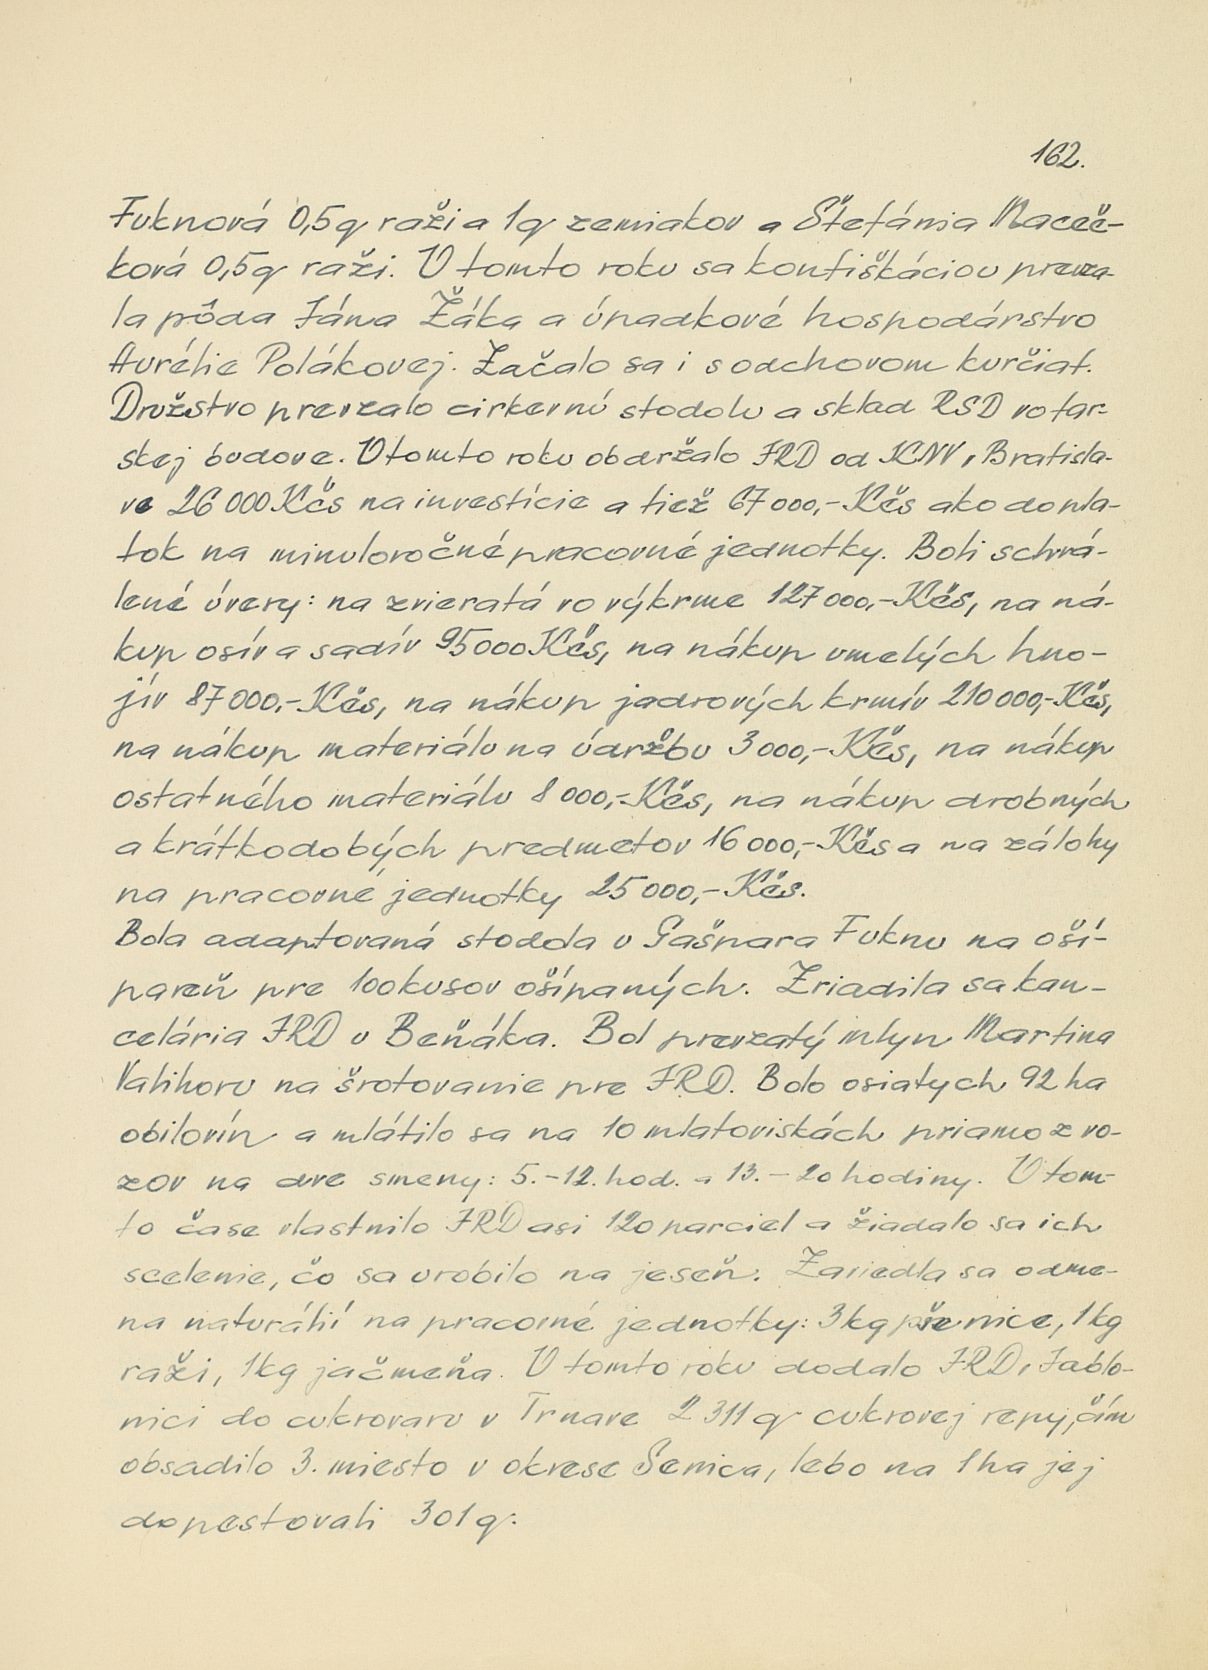 162.
Fuknová 0,5q raži a 1q zemiakov a Štefánia Maceč-
ková 0,5q raži. V tomto roku sa konfiškáciou prevza-
la pôda Jána Žáka a úpadkové hospodárstvo
Aurélie Polákovej. Začalo sa i s odchovom kurčiat.
Družstvo prevzalo cirkevnú stodolu a sklad RSD vo far-
skej budove. V tomto roku obdržalo JRD od KNV, Bratisla-
ve 26 000 Kčs na investície a tiež 67 000,- Kčs ako dopla-
tok na minuloročné pracovné jednotky. Boli schvá-
lené úvery: na zvieratá vo výkrme 127 000,- Kčs, na ná-
kup osív a sadív 95 000 Kčs, na nákup umelých hno-
jív 87 000,- Kčs, na nákup jadrových krmív 210 000,- Kčs,
na nákup materiálu na údržbu 3 000,- Kčs, na nákup
ostatného materiálu 8 000,- Kčs, na nákup drobných
a krátkodobých predmetov 16 000,- Kčs a na zálohy
na pracovné jednotky 25 000,- Kčs.
Bola adaptovaná stodola u Gašpara Fuknu na oší-
pareň pre 100 kusov ošípaných. Zriadila sa kan-
celária JRD u Beňáka. Bol prevzatý mlyn Martina
Valihoru na šrotovanie pre JRD. Bolo osiatych 92 ha
obilovín a mlátilo sa na 10 mlatoviskách priamo z vo-
zov na dve smeny: 5.-12. hod. a 13.-20 hodiny. V tom-
to čase vlastnilo JRD asi 120 parciel a žiadalo sa ich
scelenie, čo sa urobilo na jeseň. Zaviedla sa odme-
na naturálií na pracovné jednotky: 3 kg pšenice, 1 kg
raži, 1kg jačmeňa. V tomto roku dodalo JRD, Jablo-
nici do cukrovaru v Trnave 2 311 q cukrovej repy, čím
obsadilo 3. miesto v okrese Senica, lebo na 1ha jej
dopestovali 301 q.